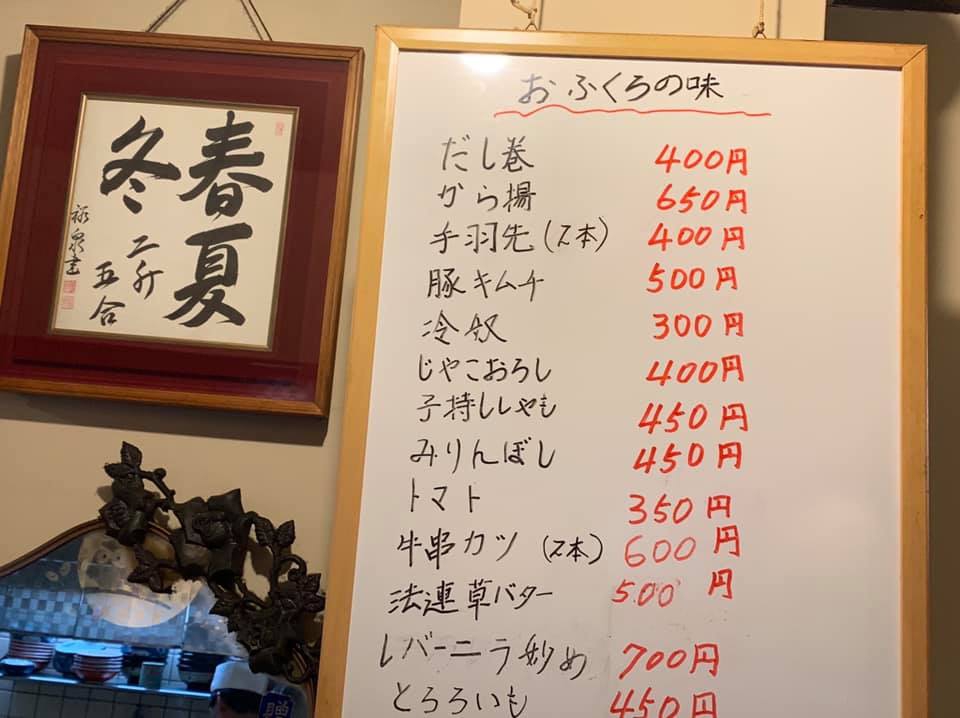 春夏
冬
二升
五合
裕泉書
おふくろの味
だし巻 400円
から揚 650円
手羽先(2本) 400円
豚キムチ 500円
冷奴 300円
じゃこおろし 400円
子持ししゃも 450円
みりんぼし 450円
トマト 350円
牛串カツ(2本) 600円
法連草バター 500円
レバーニラ妙め 700円
とろろいも 450円